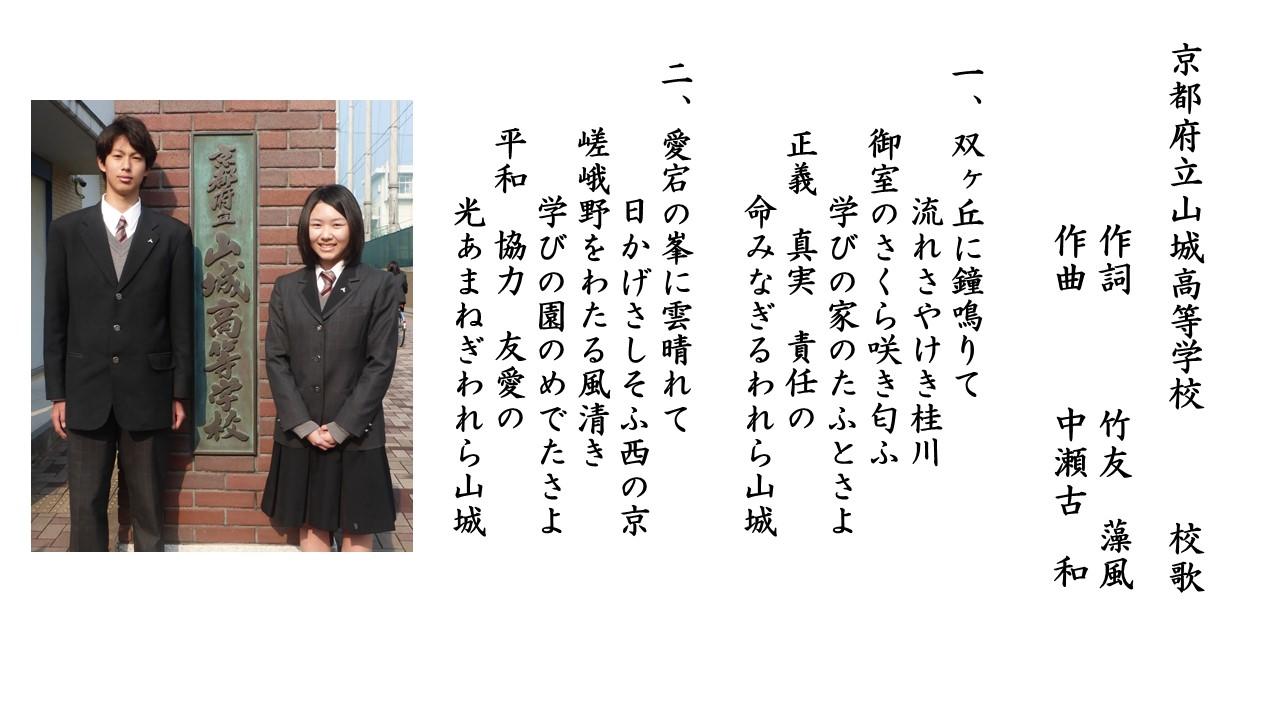 京都府立山城高等学校　校歌
作詞　竹友　藻風
作曲　中瀬古　和
一、双ヶ丘に鐘鳴りて
流れさやけき桂川
御室のさくら咲き匂ふ
学びの家のたふとさよ
正義　真実　責任の
命みなぎるわれら山城
二、愛宕の峯に雲晴れて
日かげさしそふ西の京
嵯峨野をわたる風清き
学びの園のめでたさよ
平和　協力　友愛の
光あまねぎわれら山城
京都府立山城高等学校